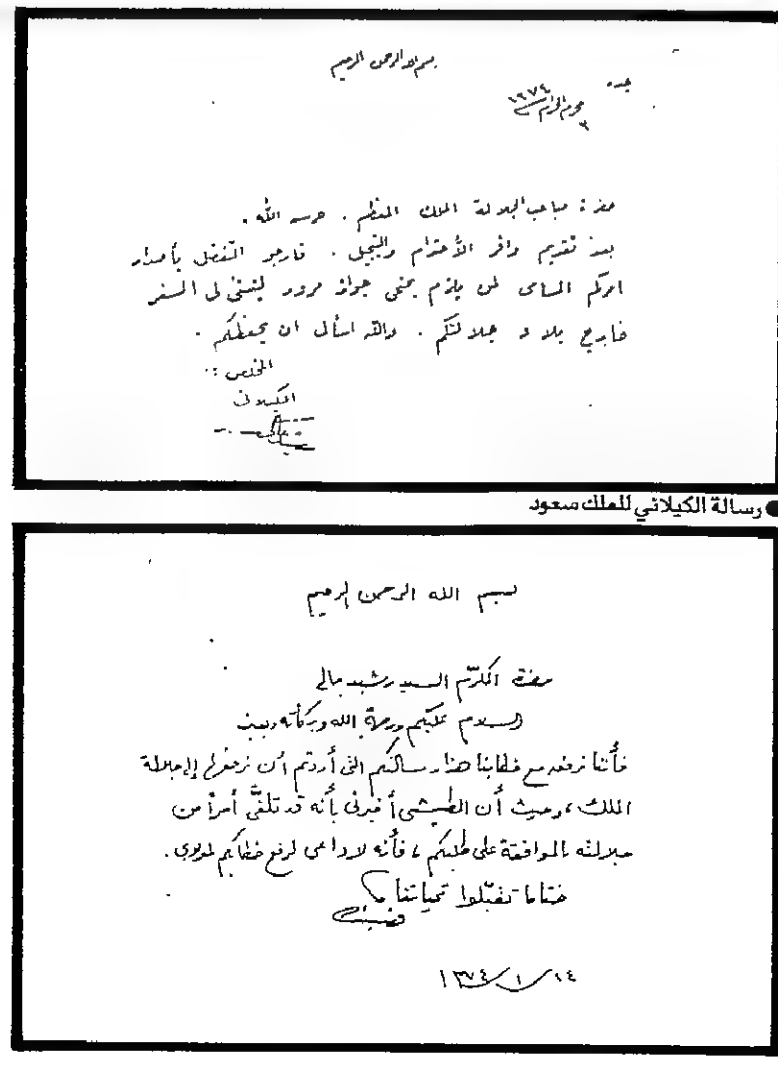 بسم الله الرحمن الرحيم
جده
٣ محرم الحرام ١٣٧٤
حضرة صاحب الجلالة الملك المعظم . حرسه الله .
بعد تقديم وافر الأحترام والتبجيل . فارجو التفضل بأصدار
امركم السامى لمن يلزم بمنحى جواز مرور ليتسنى لى السفر
خارج بلاد جلالتكم . والله اسأل ان يحفظكم .
المخلص :.
الكيلانى
رسالة الكيلاني للملك سعود
بسم الله الرحمن الرحيم
حضرة المكرّم السيد رشيد عالي
السلام عليكم ورحمة الله وبركاته وبعد
فأننا نرفق مع خطابنا هذا رسالتكم التى أردتم أن نرفعها إلى جلالة
الملك ، وحيث أن الطبيشى أخبرنى بأنه قد تلقَّى أمراً من
جلالته بالموافقة على طلبكم ، فأنه لاداعى لرفع خطابكم لمولاي .
ختاما تقبّلوا تحياتنا
١٣٧٤/١/٢٤